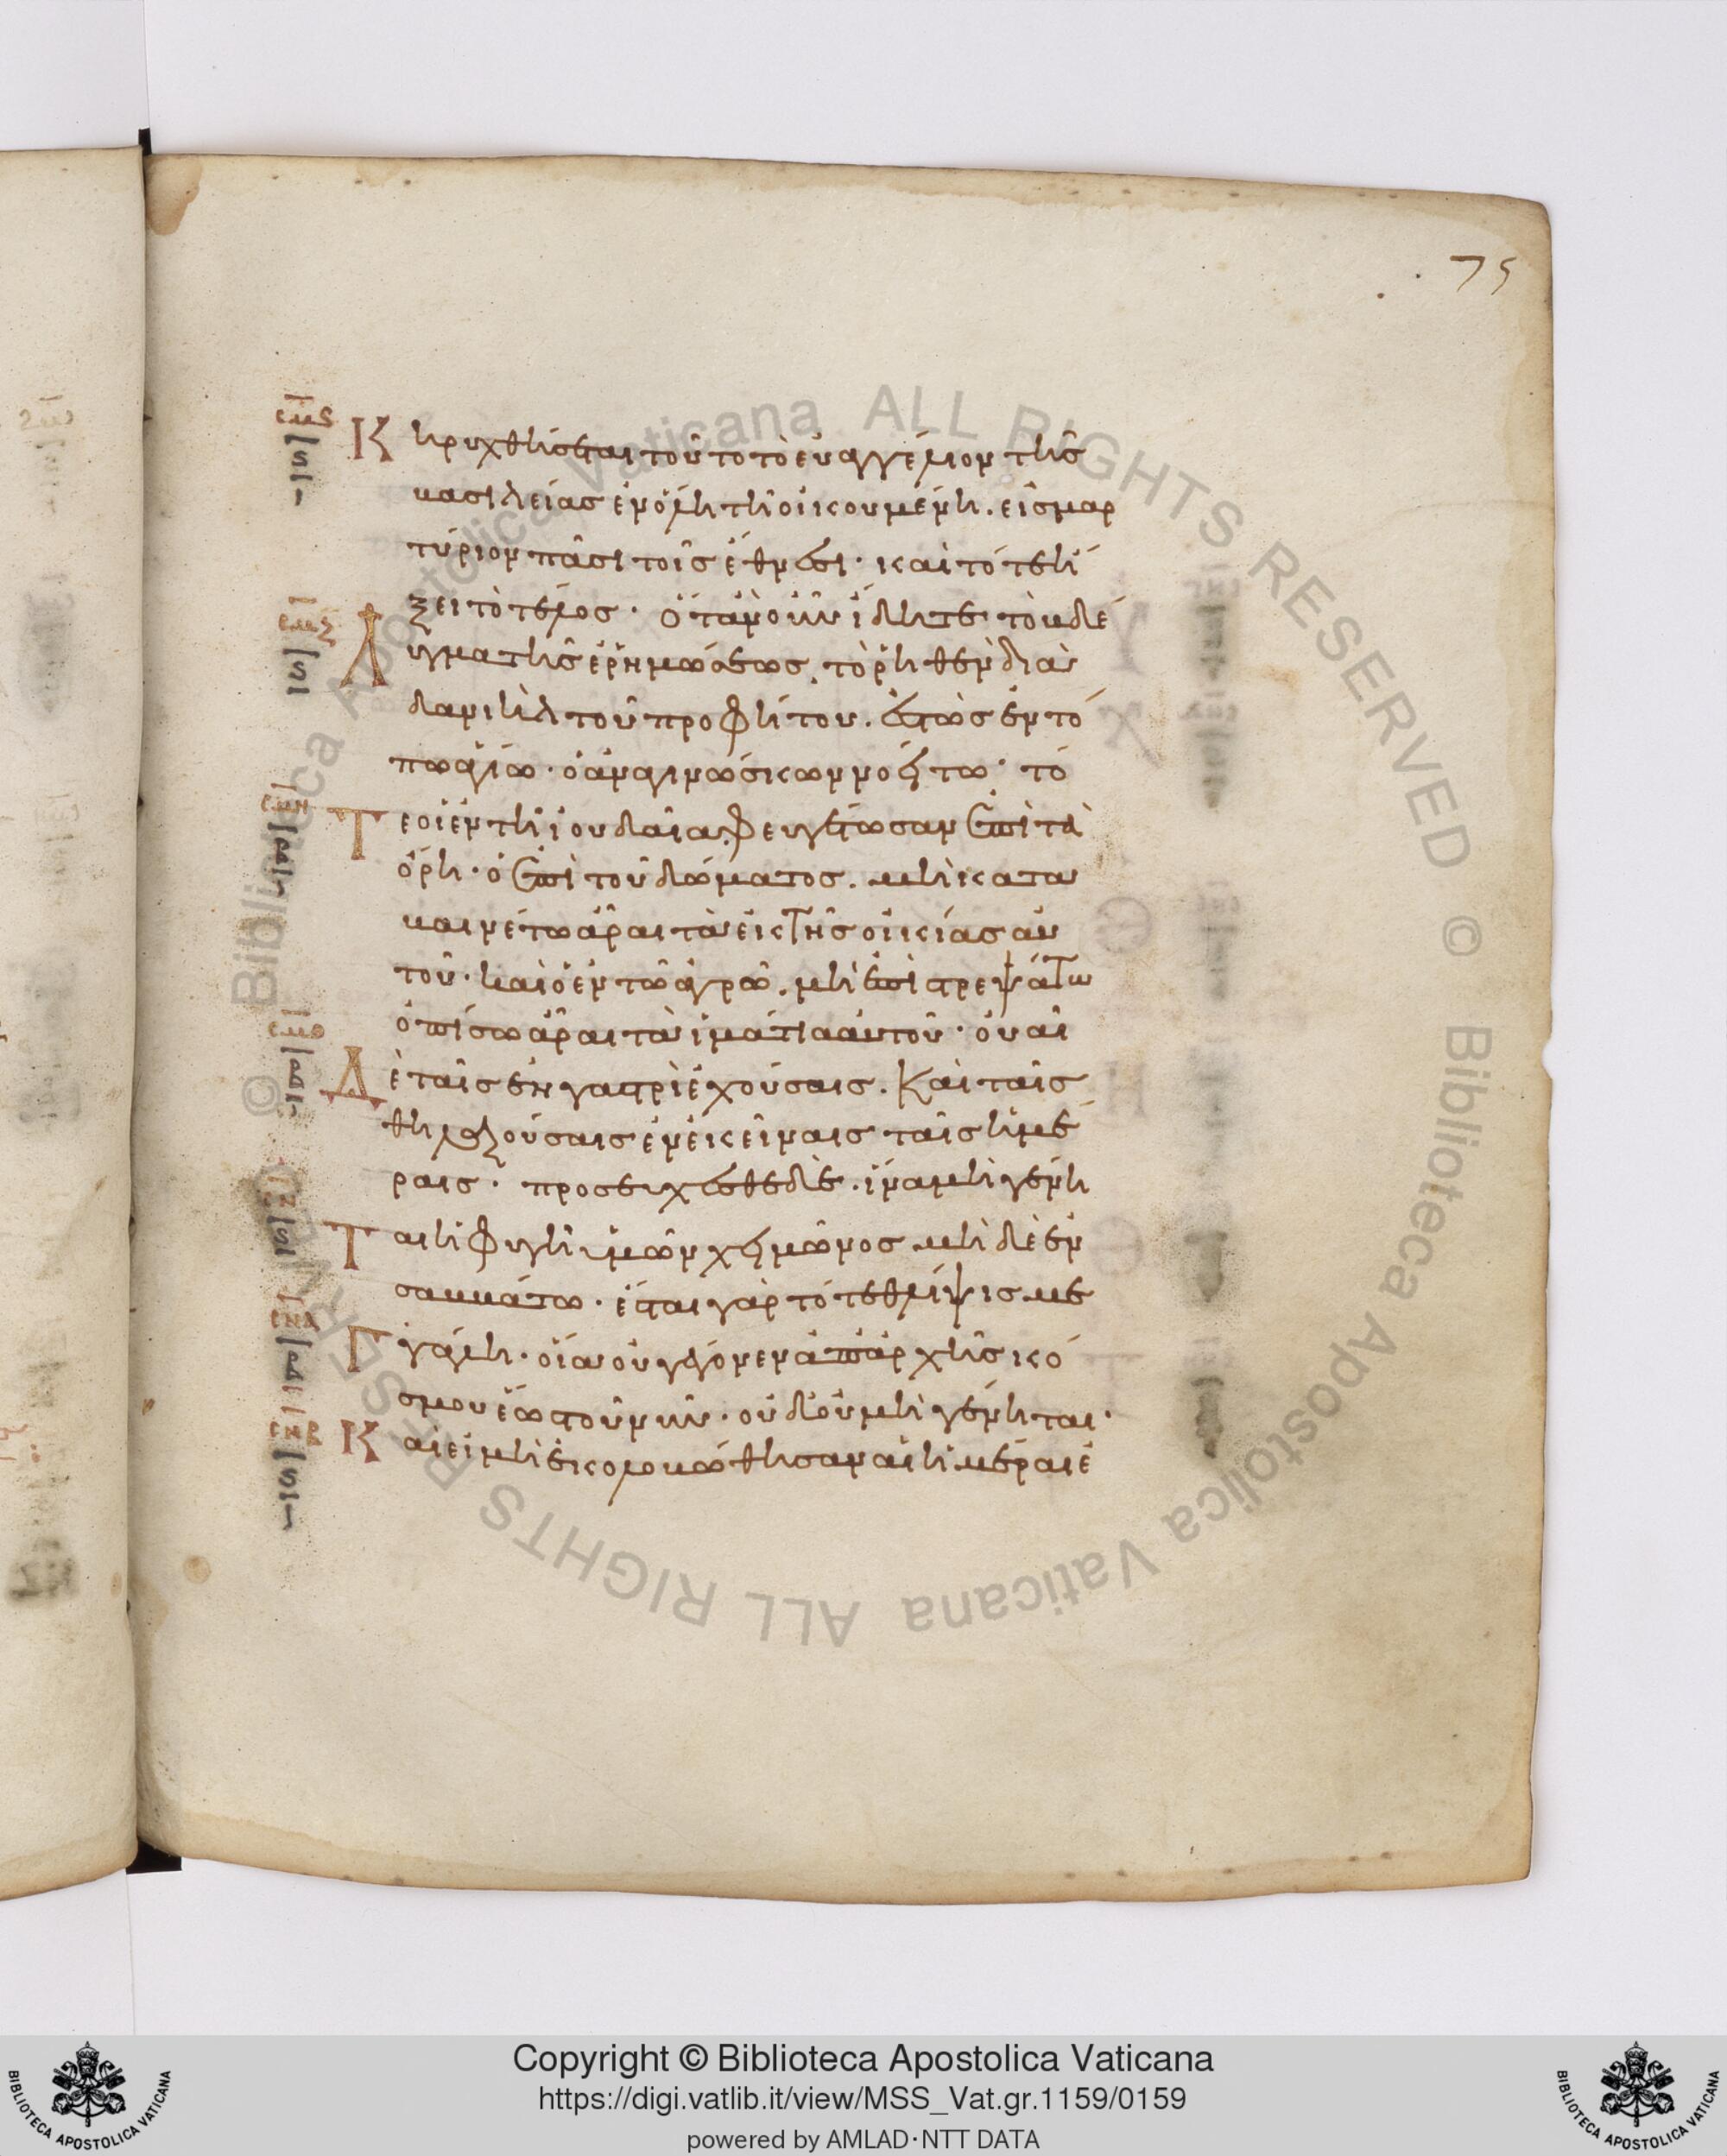 75
Κηρυχθήσεται τοῦτο τὸ εὐαγγέλιον τῆς
βασιλείας ἐν ὅλη τῆ οἰκουμένη. εἰς μαρ
τύριον πᾶσι τοῖς ἔθνεσι· καὶ τότε ἥ
ξει τὸ τέλος· Ὅταν οὖν ἴδητε τὸ βδέ
Λυγμα τῆς ἐρημώσεως, τὸ ῥηθὲν διὰ
δανιὴλ τοῦ προφήτου. ἑστὼς ἐν τό
πω ἁγίω· ὁ ἀναγινώσκων νοείτω· τό
Τε οἱ ἐν τῆ ἰουδαία φευγέτωσαν ἐπὶ τὰ
ὄρη· ὁ ἐπὶ τοῦ δώματος. μὴ κατα
βαινέτω ἆραι τὰ ἐκ τῆς οἰκίας αὐ
τοῦ· καὶ ὁ ἐν τῶ ἀγρῶ. μὴ ἐπιστρεψάτω
ὀπίσω ἆραι τὰ ἱμάτια αὐτοῦ· οὐαὶ
Δὲ ταῖς ἐν γαστρὶ ἐχούσαις. Καὶ ταῖς
θηλαζούσαις ἐν ἐκείναις ταῖς ἡμέ
ραις· προσεύχεσθε δὲ. ἵνα μὴ γένη
Ται ἡ φυγὴ ὑμῶν χειμῶνος μηδὲ ἐν
σαββάτω· ἔσται γὰρ τότε θλίψις με
Γγάλη· οἵα οὐ γέγονεν ἀπαρχῆς κό
σμου ἕως τοῦ νῦν· οὐδοὐμὴ γένηται·
Καὶ εἰ μὴ ἐκολοβώθησαν αἱ ἡμέραι ἐ
Copyright © Biblioteca Apostolica Vaticana
https://digi.vatlib.it/view/MSS_Vat.gr.1159/0159
powered by AMLAD·NTT DATA
BIBLIOTECA APOSTOLICA VATICANA
BIBLIOTECA APOSTOLICA VATICANA
© Biblioteca Apostolica Vaticana ALL RIGHTS RESERVED © Biblioteca Apostolica Vaticana ALL RIGHTS RESERVED